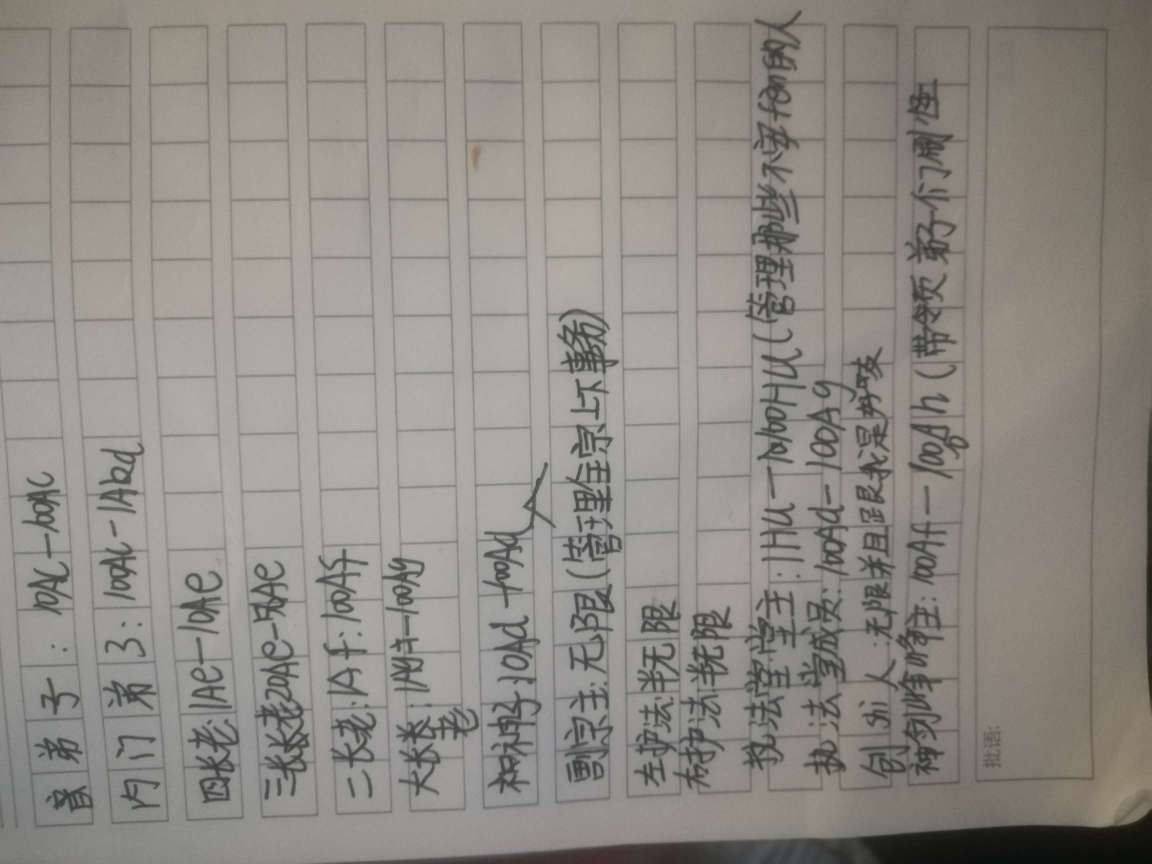 弟子:10AC-100AC
内门弟3:100AC-1Abd
四长老:1Ae-10Ae
三长老20Ae-50Ae
二长老:1Af:100Af
大长老:1Ag-100Ag
神子:10Ad-100Ad
副宗主:无限(管理全宗上下事务)
左护法:半无限
右护法:半无限
执法堂堂主:1HU-10100HU(管理那些不安fen的人
执法堂成员:100Ad-100Ag
创si人:无限并且跟我是好友
神剑峰峰主:100Af-100gh(带领弟子们刷怪
批语: